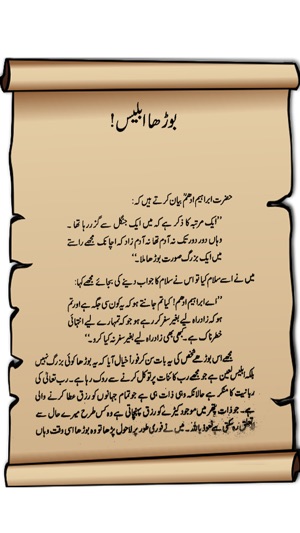 بوڑھا ابلیس!
حضرت ابراہیم ادھمؒ بیان کرتے ہیں کہ:
”ایک مرتبہ کا ذکر ہے کہ میں ایک جنگل سے گزر رہا تھا۔
وہاں دور دور تک نہ آدم تھا نہ آدم زاد کہ اچانک مجھے راستے
میں ایک بزرگ صورت بوڑھا ملا۔“
میں نے اسے سلام کیا تو اس نے سلام کا جواب دینے کی بجائے مجھے کہا:
”اے ابراہیم ادھم! کیا تم جانتے ہو کہ یہ کون سی جگہ ہے اور تم
ہو کہ زادِ راہ کے بغیر سفر کر رہے ہو جو کہ تمہارے لیے انتہائی
خطرناک ہے۔ کبھی بھی زادِ راہ کے بغیر سفر نہ کیا کرو۔“
مجھے اس بوڑھے شخص کی یہ بات سن کر فوراً خیال آیا کہ یہ بوڑھا کوئی بزرگ نہیں
بلکہ ابلیس لعین ہے جو مجھے رب کائنات پر توکل کرنے سے روک رہا ہے۔ رب تعالیٰ کی
ربانیت کا منکر ہے حالانکہ وہی ذات ہی ہے جو تمام جہانوں کو رزق عطا کرنے والی
ہے۔ جو ذات پتھر میں موجود کیڑے کو رزق پہنچاتی ہے وہ کس طرح میرے حال سے
لاتعلق رہ سکتی ہے نعوذ باللہ۔ میں نے فوری طور پر لاحول پڑھا تو وہ بوڑھا اسی وقت وہاں